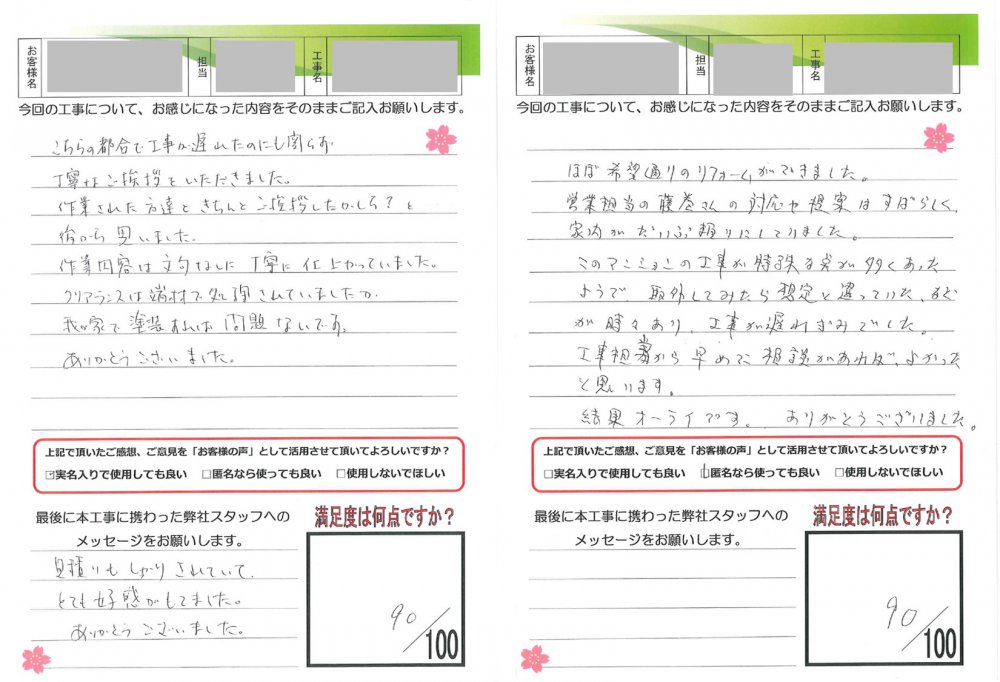 お客様名
担当
工事名
今回の工事について、お感じになった内容をそのままご記入お願いします。
こちらの都合で工事が遅れたのにも関らず
丁寧なご挨拶をいただきました。
作業された方達ときちんとご挨拶したかしら?と
後から思いました。
作業内容は文句なしに丁寧に仕上がっていました。
クリアランスは端材で処理されていましたが
我が家で塗装すれば問題ないです。
ありがとうございました。
上記で頂いたご感想、ご意見を「お客様の声」として活用させて頂いてよろしいですか?
☑実名入りで使用しても良い □匿名なら使っても良い □使用しないでほしい
最後に本工事に携わった弊社スタッフへの
メッセージをお願いします。
見積りもしっかりされていて、
とても好感がもてました。
ありがとうございました。
満足度は何点ですか?
90/100
お客様名
担当
工事名
今回の工事について、お感じになった内容をそのままご記入お願いします。
ほぼ希望通りのリフォームができました。
営業担当の藤巻さんの対応や提案はすばらしく、
家内がだいぶ頼りにしてりました。
このマンションの工事が特殊な実が多くあった
ようで、取外してみたら想定と違っていた、など
が時々あり、工事が遅れずみでした。
工事担当から早めに相談があれば、よかった
と思います。
結果オーライです。ありがとうございました。
上記で頂いたご感想、ご意見を「お客様の声」として活用させて頂いてよろしいですか?
□実名入りで使用しても良い ☑匿名なら使っても良い □使用しないでほしい
最後に本工事に携わった弊社スタッフへの
メッセージをお願いします。
満足度は何点ですか?
90/100